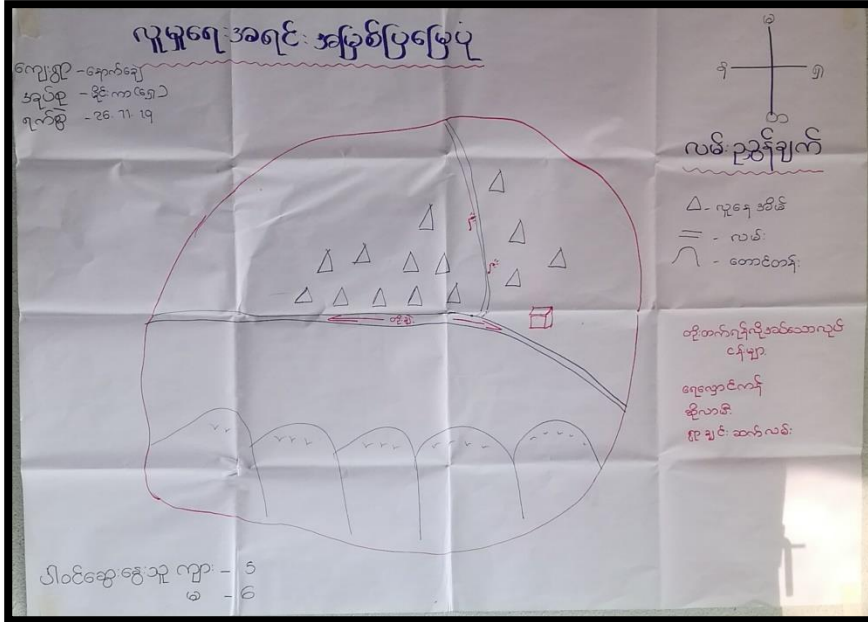 လူမှုရေးအရင်းအမြစ်ပြမြေပုံ
ကျေးရွာ -နောက်ချေ
အုပ်စု - ခိုင်းကာ(ရှေ့)
ရက်စွဲ - 26.11.19
မ
န
ရှ
တ
လမ်းညွှန်ချက်
- လူနေအိမ်
- လမ်း
- တောင်တန်း
တိုးတက်ရန်လိုအပ်သောလုပ်
ငန်းများ
ရေလှောင်ကန်
ဆိုလာမီး
ရွာချင်းဆက်လမ်း
ပါဝင်ဆွေးနွေးသူ ကျား - 5
မ - 6